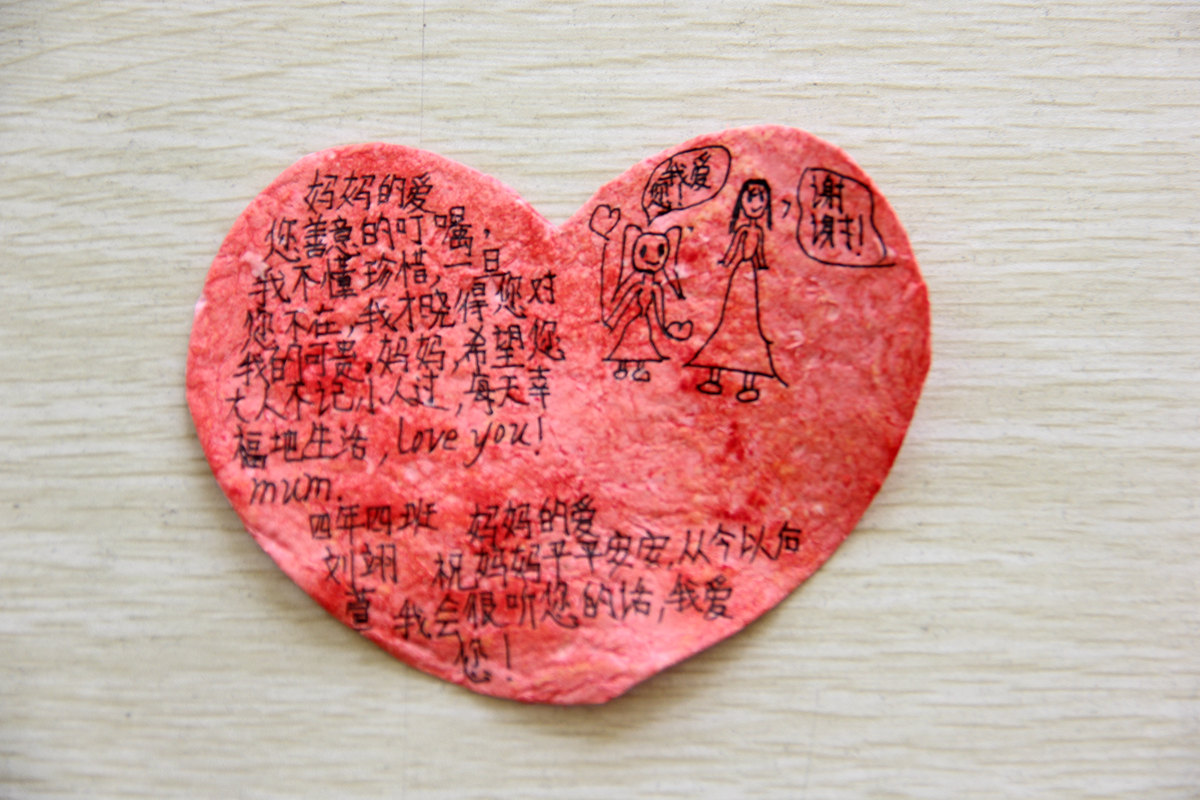 妈妈的爱
您善意的叮嘱，
我不懂珍惜，一旦
您不在，我才晓得您对
我的可贵，妈妈，希望您
大人不记小人过，每天幸
福地生活，Love you!
mum.
四年四班
刘翊
萱
妈妈的爱
祝妈妈平平安安，从今以后
我会很听您的话，我爱
您！
我爱
您
谢
谢！